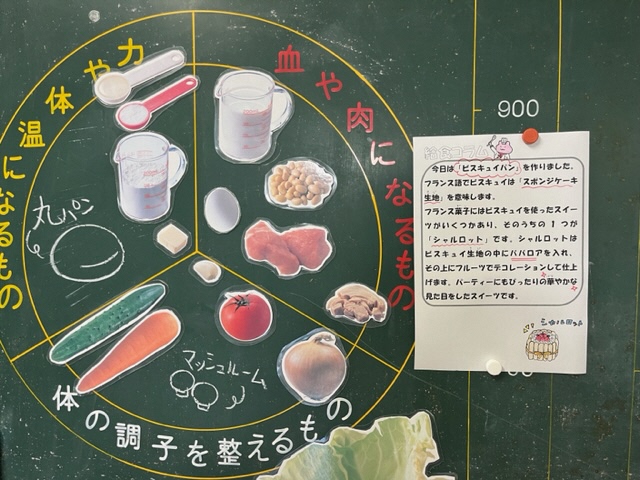 体温や力になるもの
血や肉になるもの
体の調子を整えるもの
丸パン
マッシュルーム
900
給食コラム
今日は「ビスキュイパン」を作りました。
フランス語でビスキュイは「スポンジケーキ
生地」を意味します。
フランス菓子にはビスキュイを使ったスイー
ツがいくつかあり、そのうちの1つが
「シャルロット」です。シャルロットは
ビスキュイ生地の中にババロアを入れ、
その上にフルーツでデコレーションして仕上
げます。パーティーにもぴったりの華やかな
見た目をしたスイーツです。
シャルロット